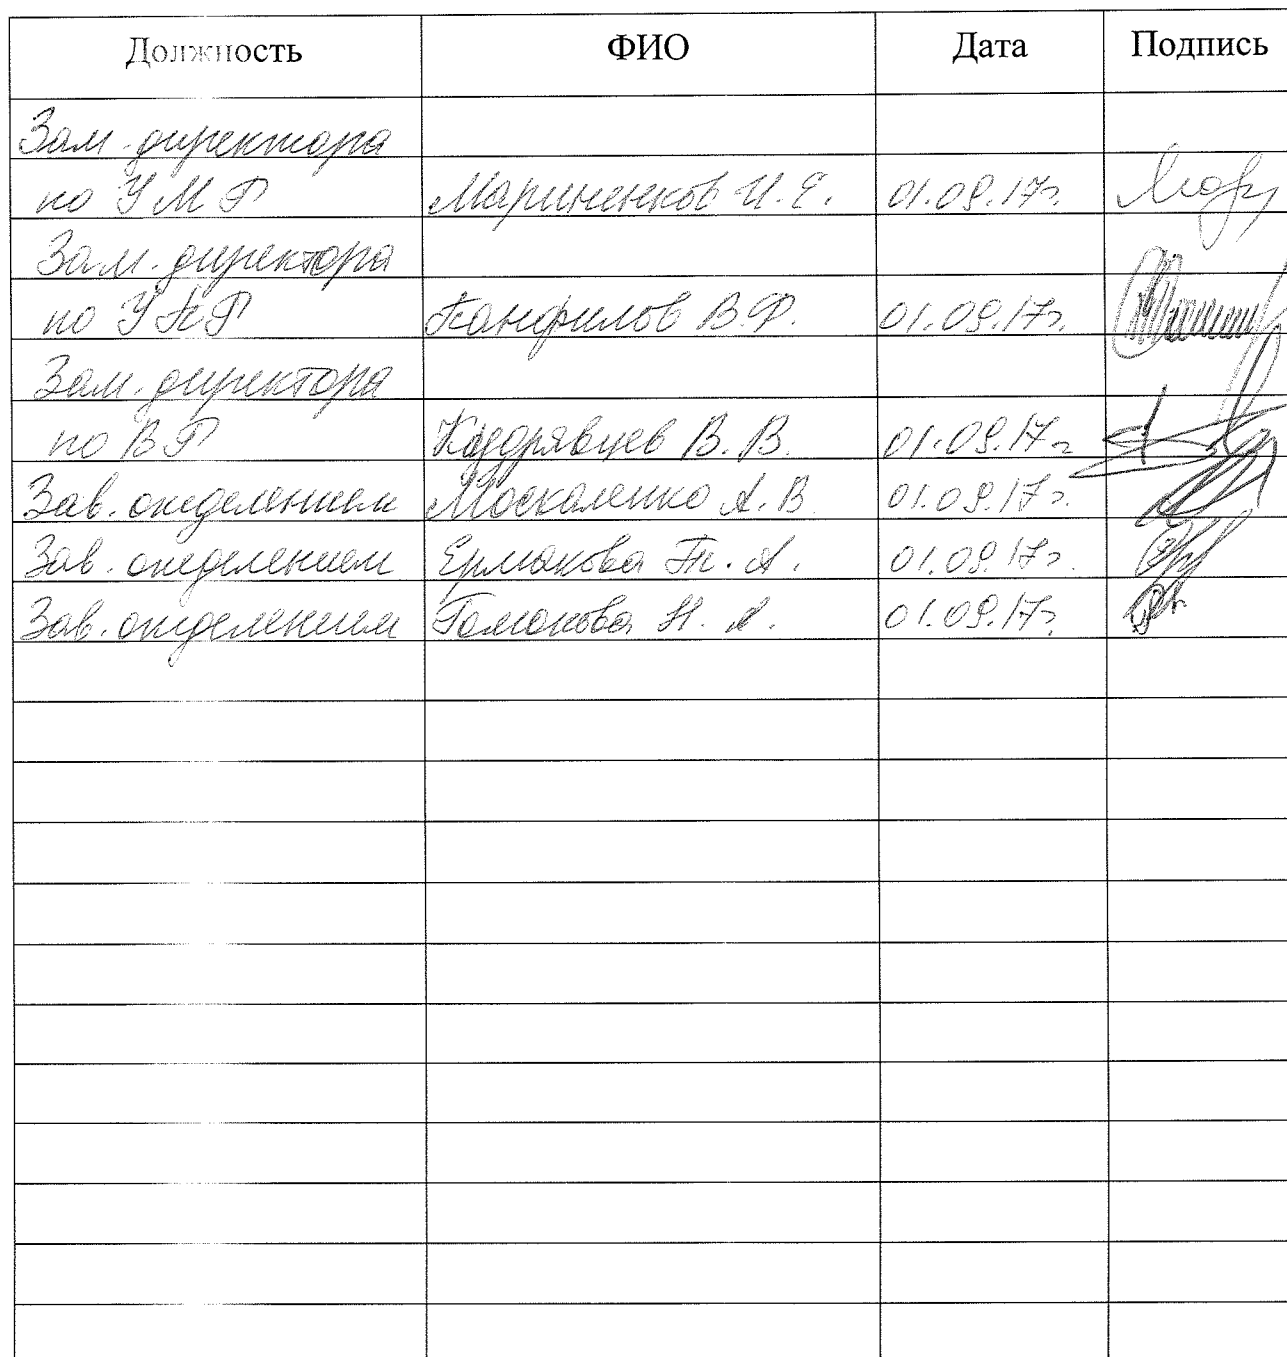 Должность ФИО Дата Подпись
Зам. директора
по УМР Мариненков И. Е. 01.09.17г.
Зам. директора
по УПР Панфилов В. Ф. 01.09.17г.
Зам. директора
по ВР Кудрявцев В. В. 01.09.17г
Зав. отделением Москаленко А. В. 01.09.17г.
Зав. отделением Ермакова Т. А. 01.09.17г.
Зав. отделением Н. А. 01.09.17г.